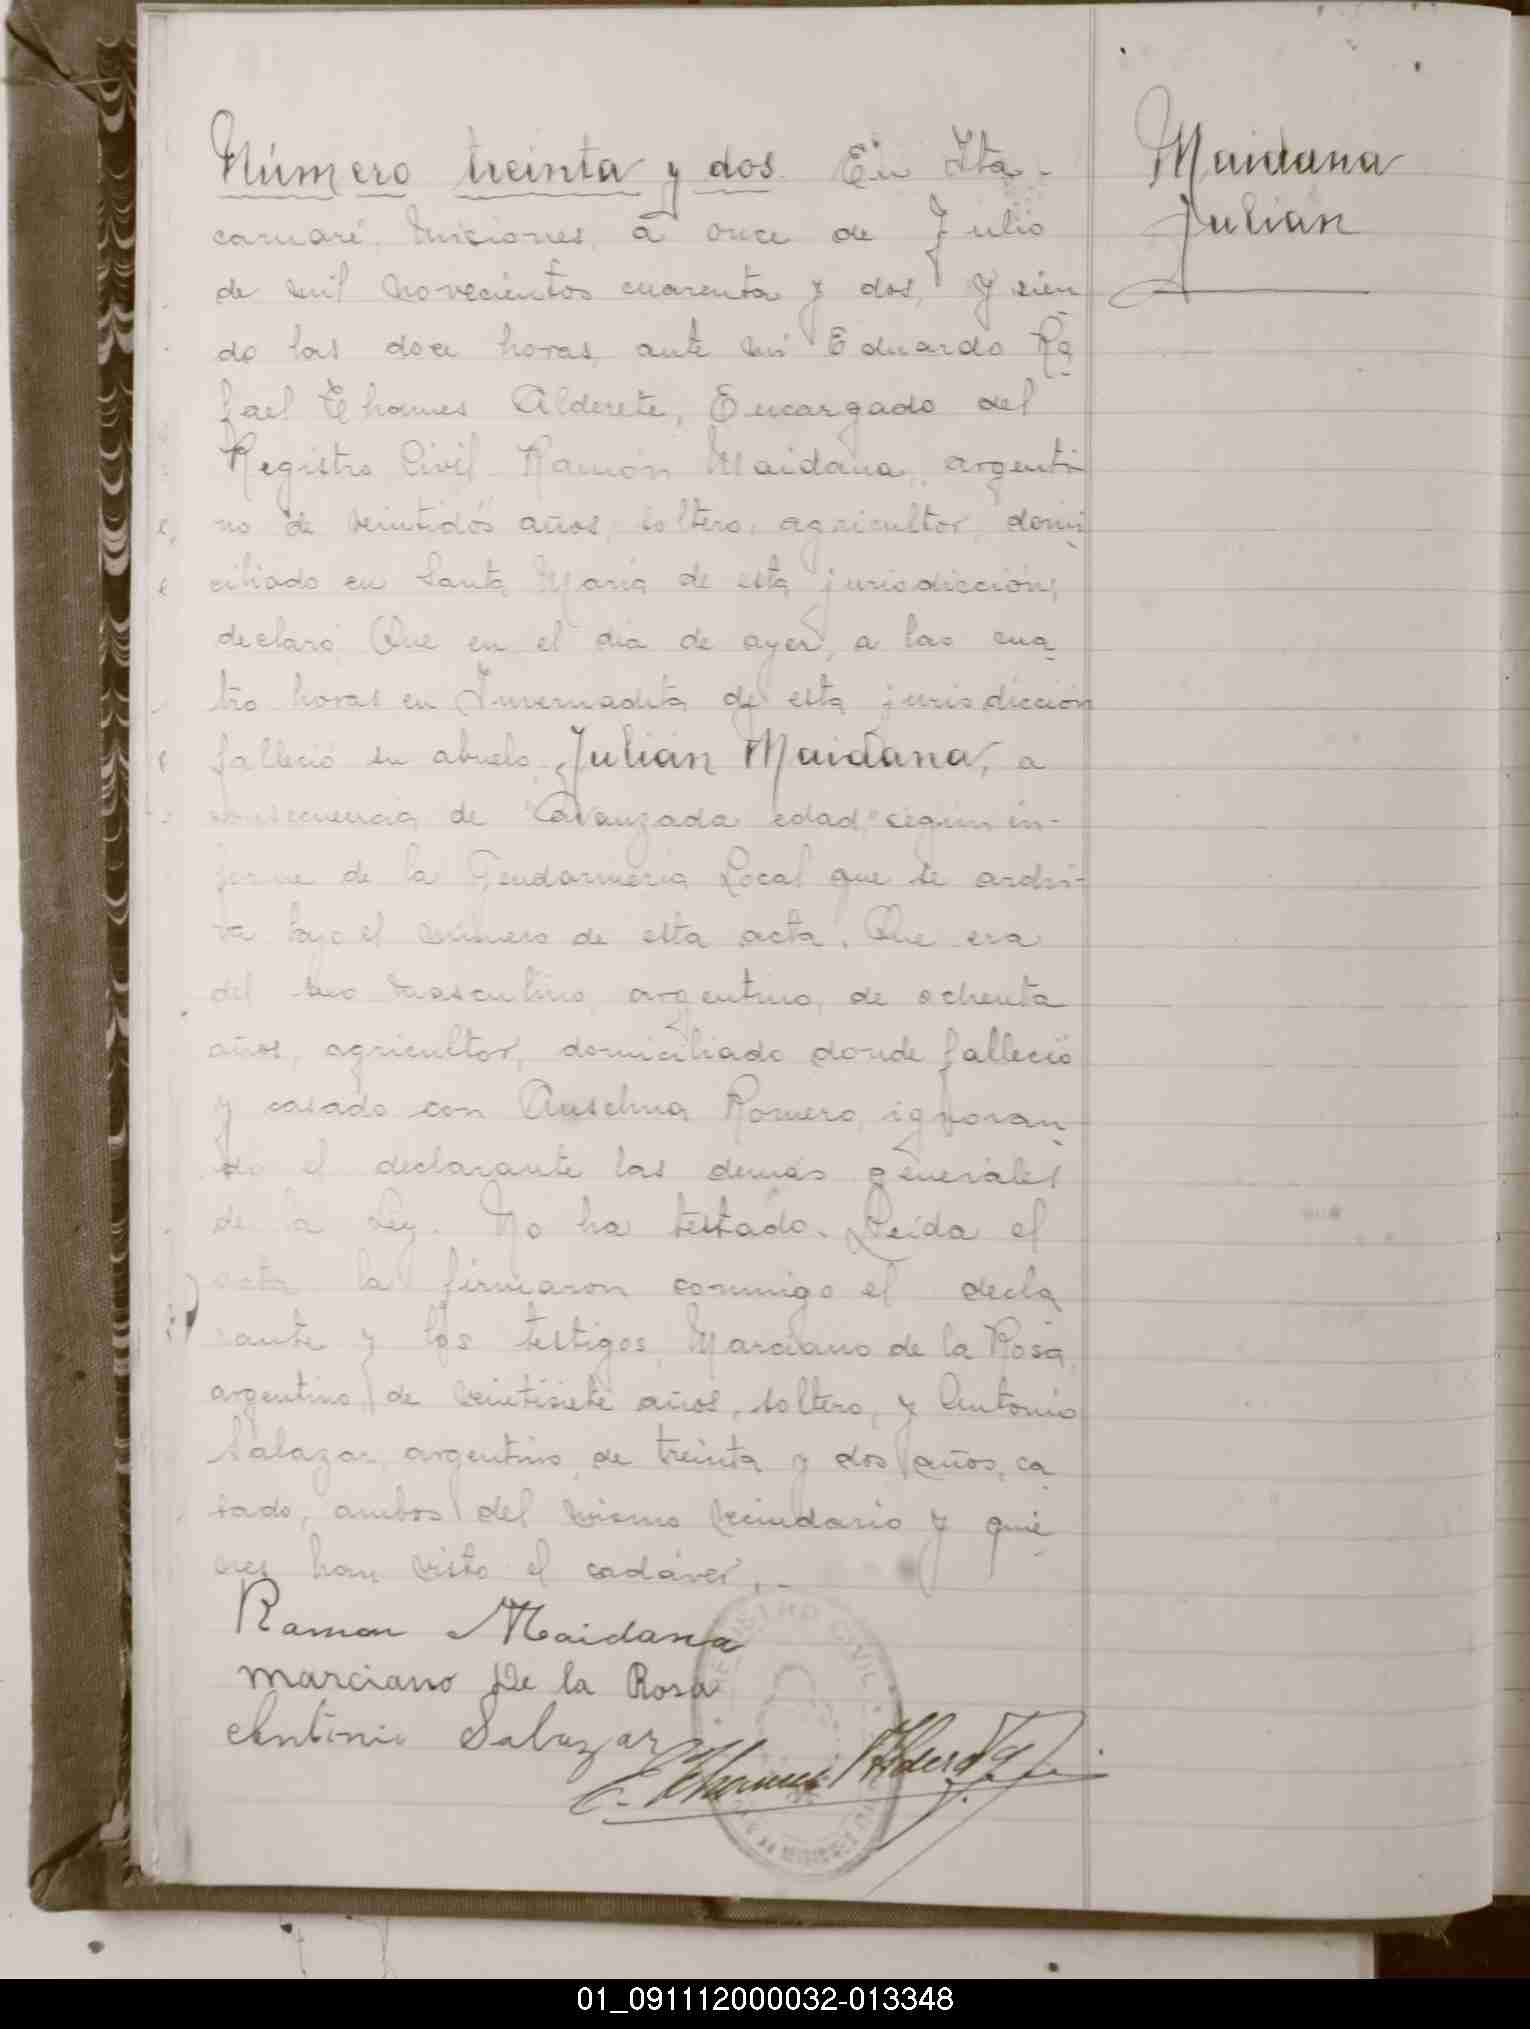 Número treinta y dos. En Ita-
caruaré, Misiones, a once de Julio
de mil novecientos cuarenta y dos, y sien
do las doce horas, ante mi Eduardo Ra
fael Thames Alderete, Encargado del
Registro Civil Ramón Maidana, argenti
no de veintidós años, soltero, agricultor, domi
ciliado en Santa María de esta jurisdicción,
declaró: Que en el día de ayer, a las cua
tro horas en Invernadita de esta jurisdicción
falleció su abuelo, Julián Maidana, a
consecuencia de "avanzada edad," según in-
forme de la Gendarmería Local que se archi-
va bajo el número de esta acta. Que era
del sexo masculino, argentino, de ochenta
años, agricultor, domiciliado donde falleció
y casado con Anselma Romero, ignoran
do el declarante las demás generales
de la Ley. No ha testado. Leída el
acta la firmaron conmigo el decla
rante y los testigos, Marciano de la Rosa,
argentino, de veintisiete años, soltero, y Antonio
Salazar, argentino, de treinta y dos años, ca
sado, ambos del mismo vecindario y quie
nes han visto el cadáver.-
Ramon Maidana
Marciano De la Rosa
Antonio Salazar
E. Thames Alderete
REGISTRO CIVIL
Maidana
Julián
01_091112000032-013348